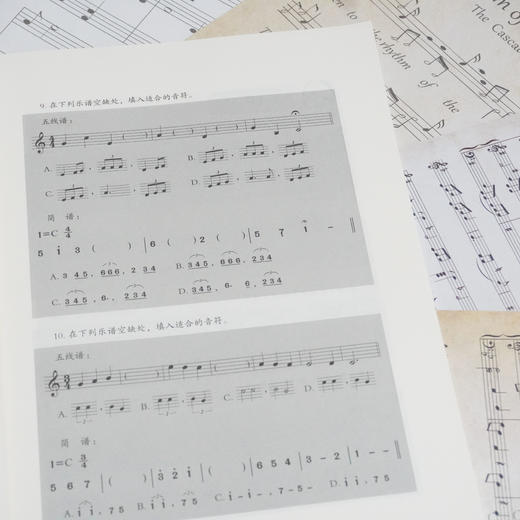 m of
The Casca
to
the rhythm
of
the
9. 在下列乐谱空缺处，填入适合的音符。
五线谱：
A.
B.
C.
D.
简　谱：
1=C 4/4
5 i 3 (　) | 6 (　) 2 (　) | 5 7 i - ‖
A. 3 4 5, 6 6 6, 2 3 4
B. 3 4 5, 6 6 6, 2 3 4
C. 3 4 5, 6·, 2 3 4
D. 3 4 5, 6· 6, 2 3 4
10. 在下列乐谱空缺处，填入适合的音符。
五线谱：
A.
B.
C.
D.
简　谱：
1=C 3/4
5 6 7 | (　) | 3 2 i | (　) | 6 5 4 | 3 - 2 | 1 - - ‖
A. i i, 7 5
B. i i, 7 5
C. i - i -, 7 - 5 -
D. i i, 7 5